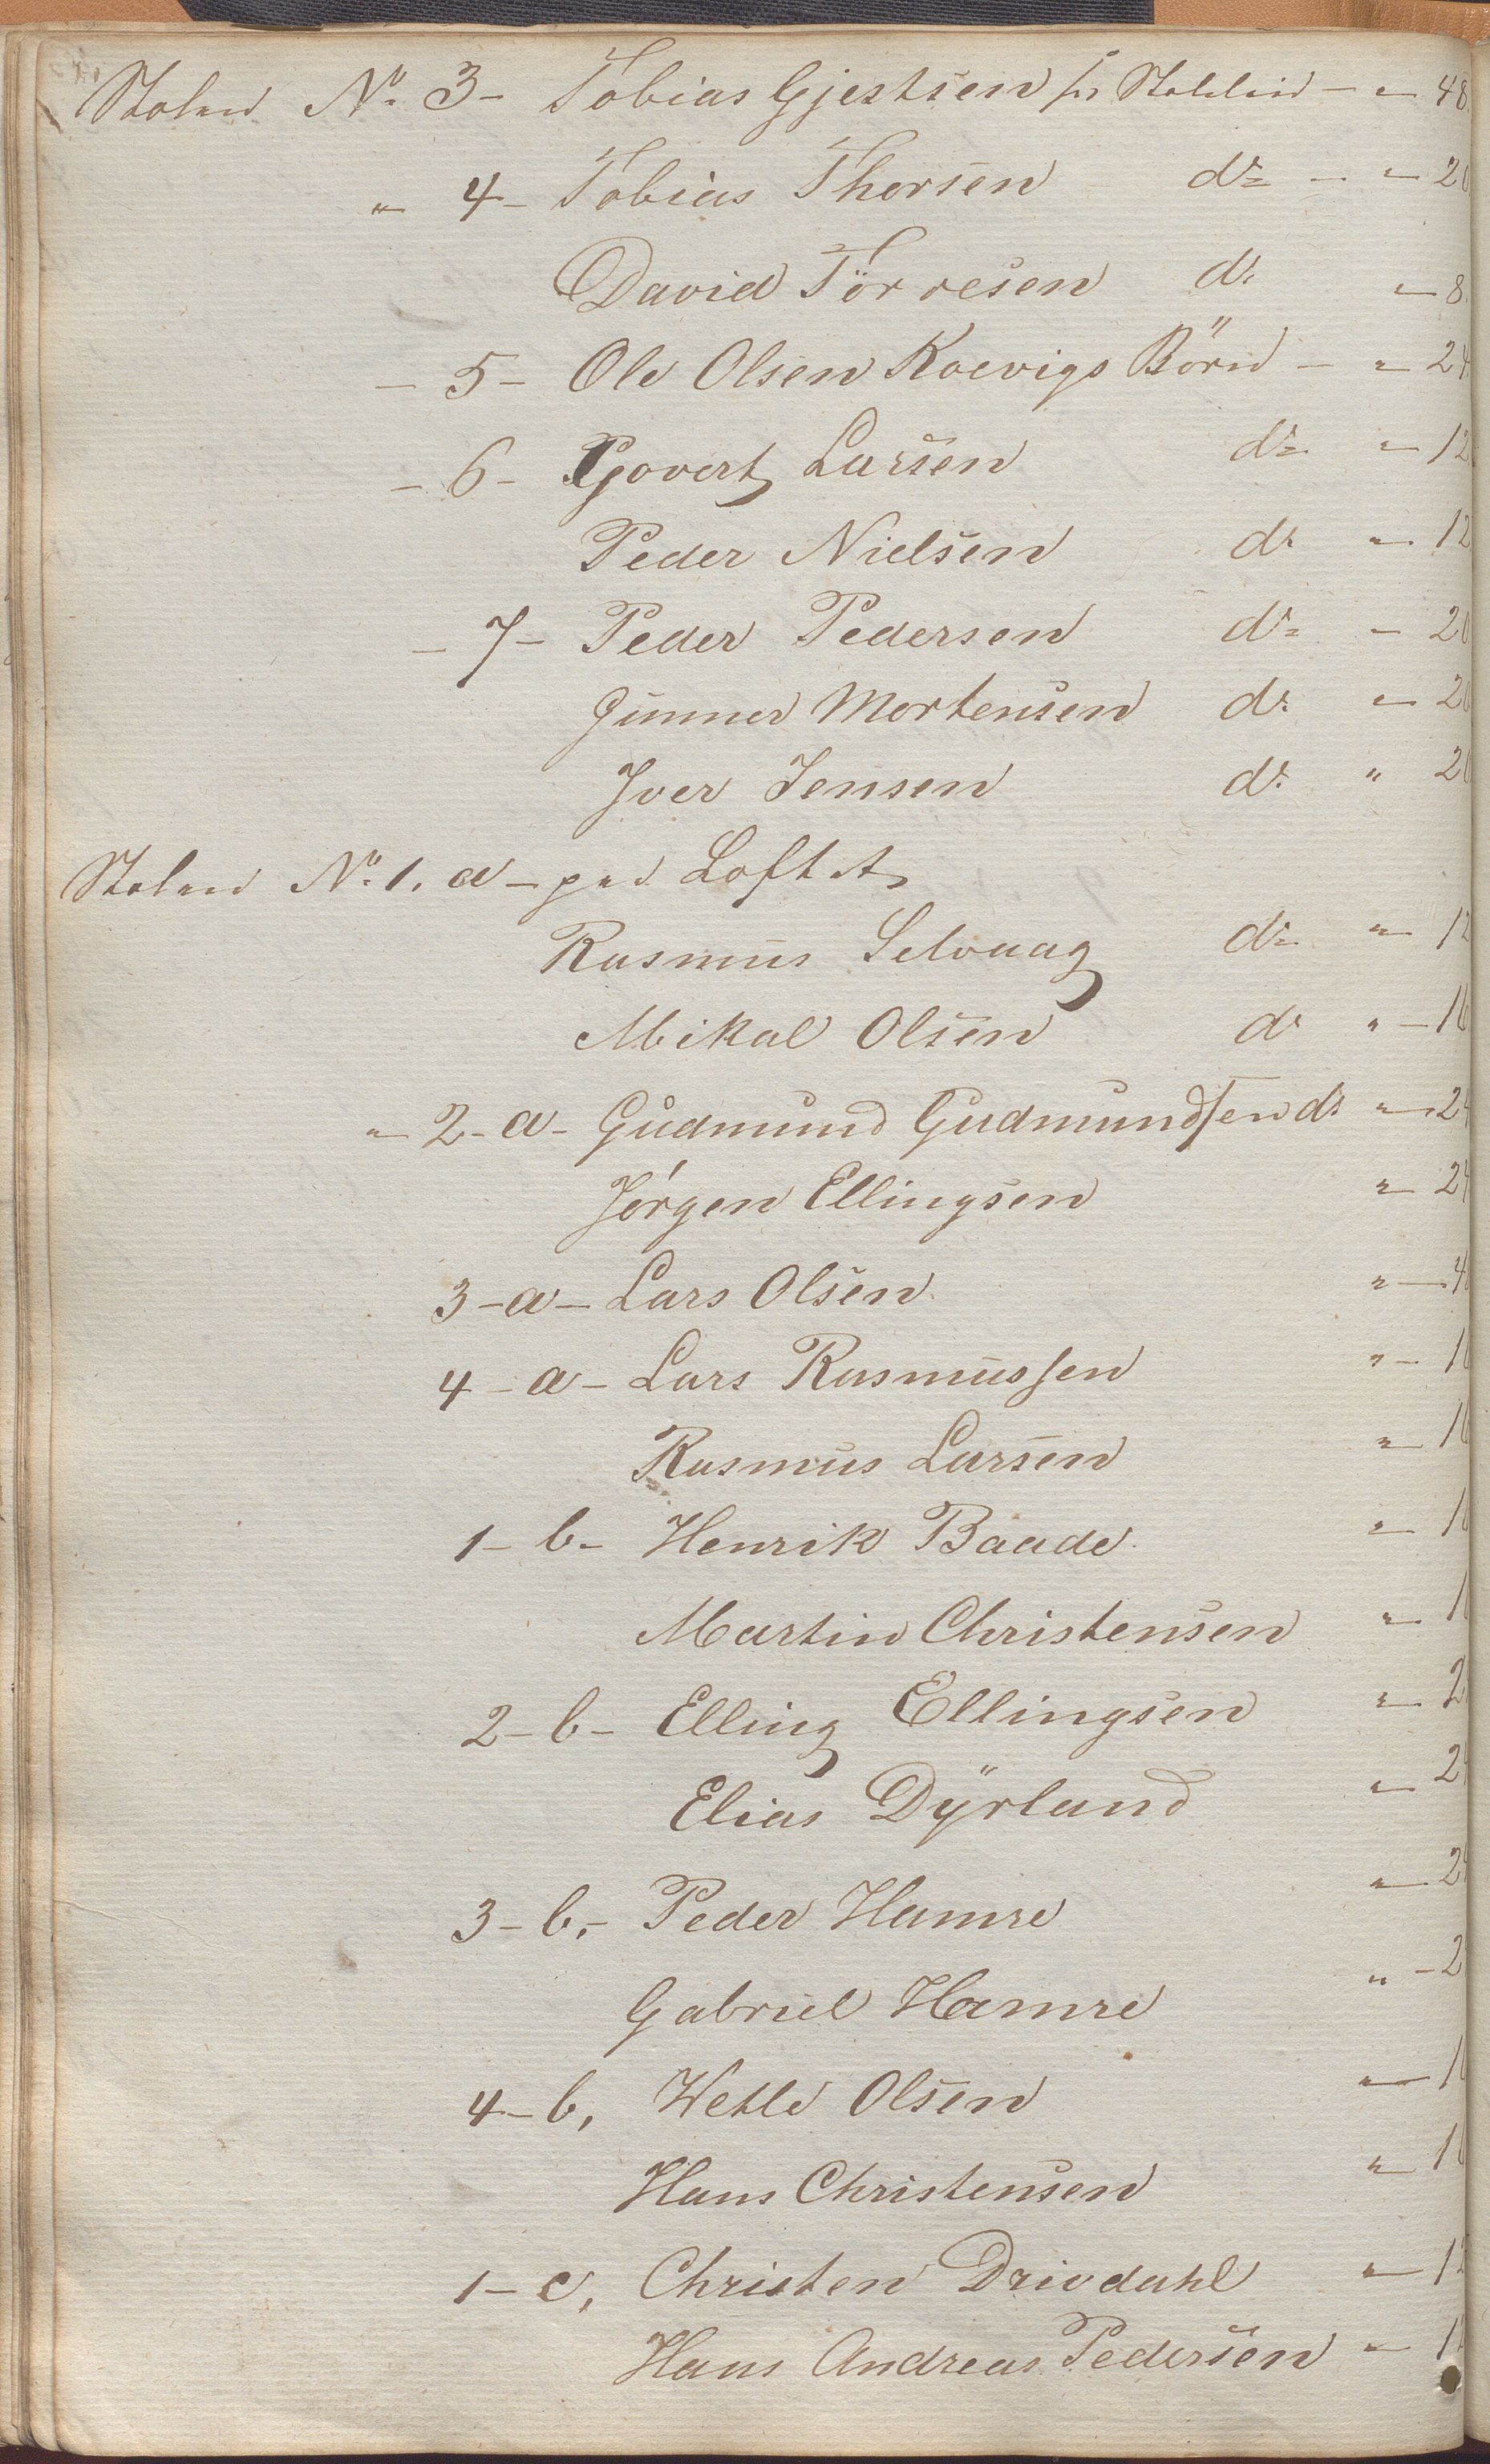 Stolen No. 3 - Tobias Gjestsen for Stoleleie - " 48
" 4 - Tobias Thorsen do - " 20
David Törresen do " 8
- 5 - Ole Olsen Koevigs Börn - " 24
- 6 - Govert Larsen do " 12
Peder Nielsen do " 12
- 7 - Peder Pedersen do - 20
Gunner Mortensen do " 20
Iver Jensen do " 20
Stolen No. 1. a - paa Loftet
Rasmus Selvaag do " 12
Mikal Olsen do " - 16
" 2 - a - Gudmund Gudmundsen do " 24
Jörgen Ellingsen " 24
3 - a - Lars Olsen "
4 - a - Lars Rasmussen "
Rasmus Larsen "
1 - b - Henrik Baade "
Martin Christensen "
2 - b - Elling Ellingsen "
Elias Dÿrland "
3 - b, - Peder Hamre "
Gabriel Hamre "
4 - b, Wetle Olsen "
Hans Christensen "
1 - c, Christen Drivdahl "
Hans Andreas Pedersen "